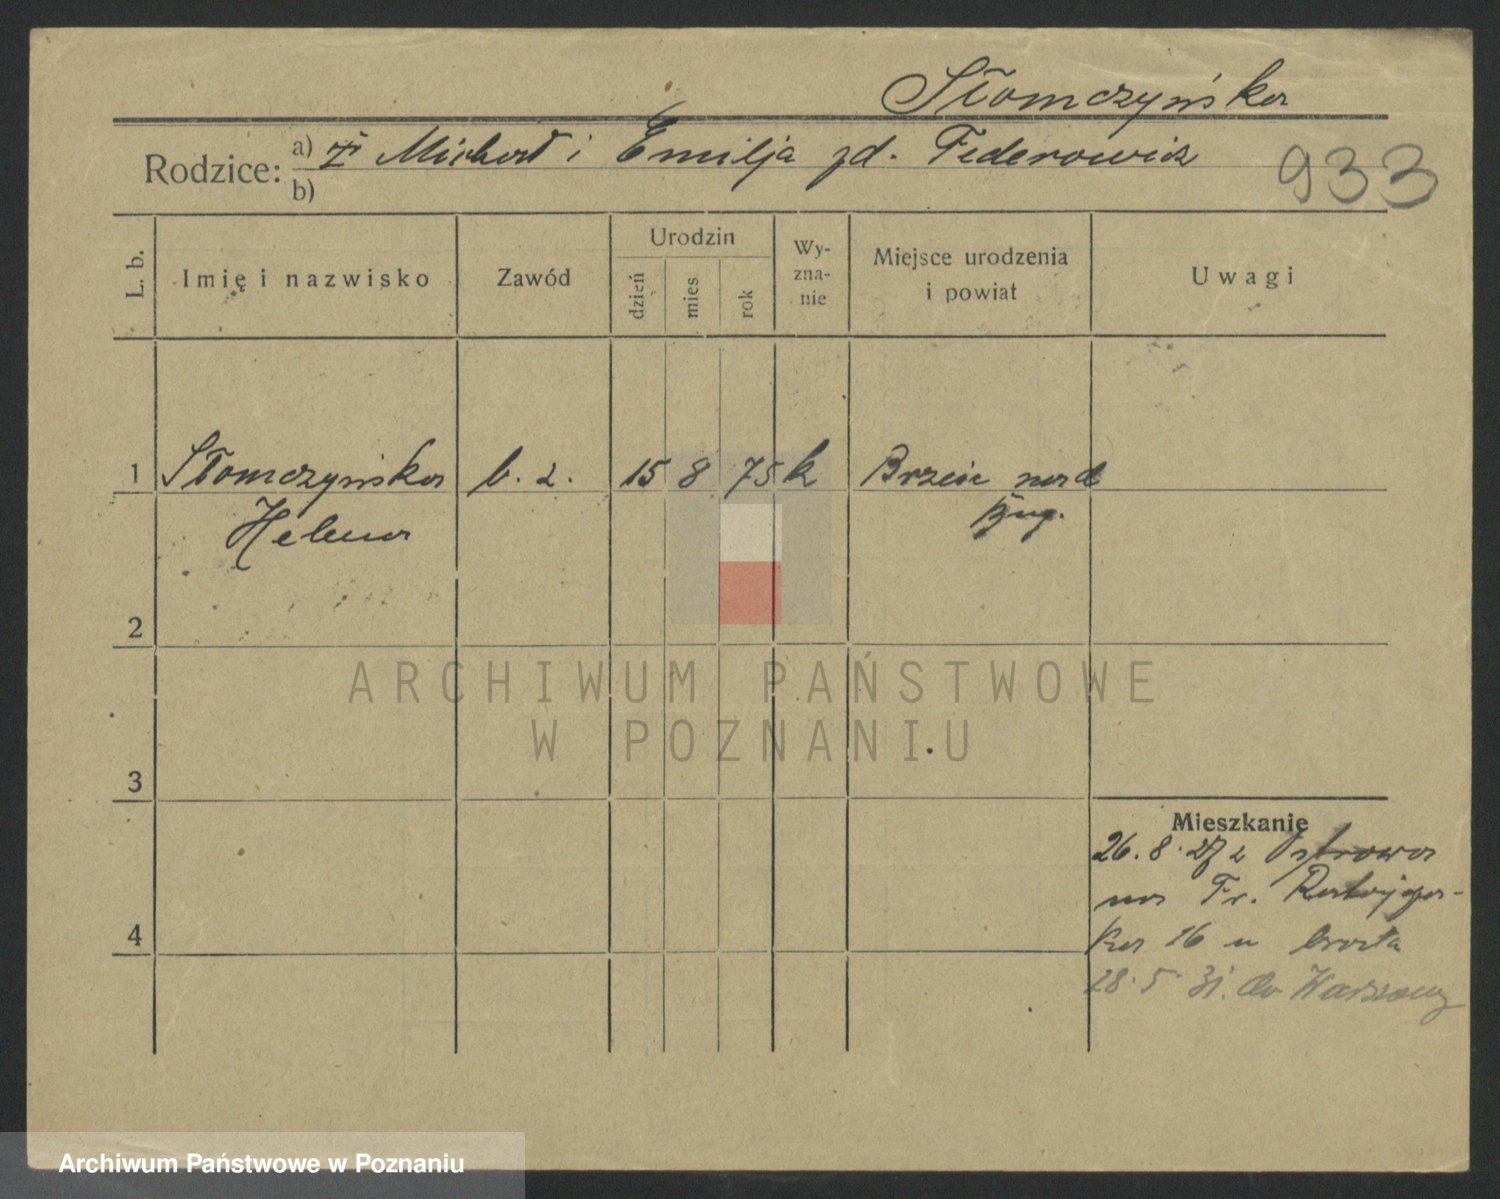 Słomczyńska
Rodzice: a) Michał i Emilja zd. Federowicz
b)
933
L. b.
Imię i nazwisko
Zawód
Urodzin
dzień
mies
rok
Wy-
zna-
nie
Miejsce urodzenia
i powiat
Uwagi
1 Słomczyńska b. z. 15 8 75 k Brześć nad
Helena Bug.
2
ARCHIWUM PAŃSTWOWE
W POZNANIU
3
Mieszkanie
26. 8. 27 z Ostrowa
na Fr. Ratajcza-
ka 16 u brata
4
28. 5. 31. do Warszawy
Archiwum Państwowe w Poznaniu